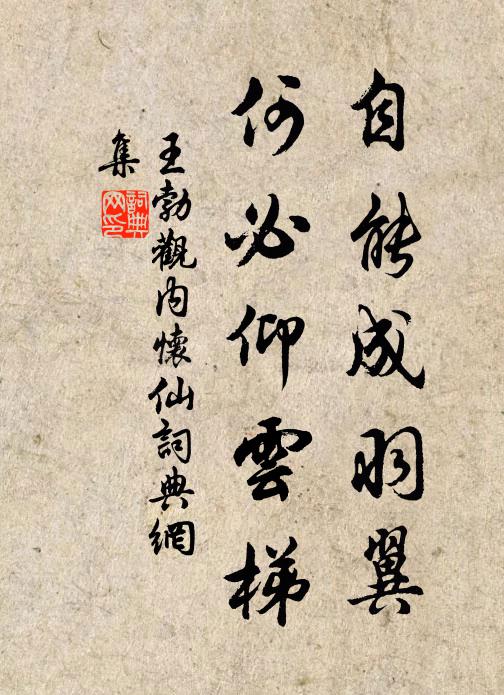 自能成羽翼
何必仰雲梯
王勃觀内懷仙詞典網
集
詞典
网印